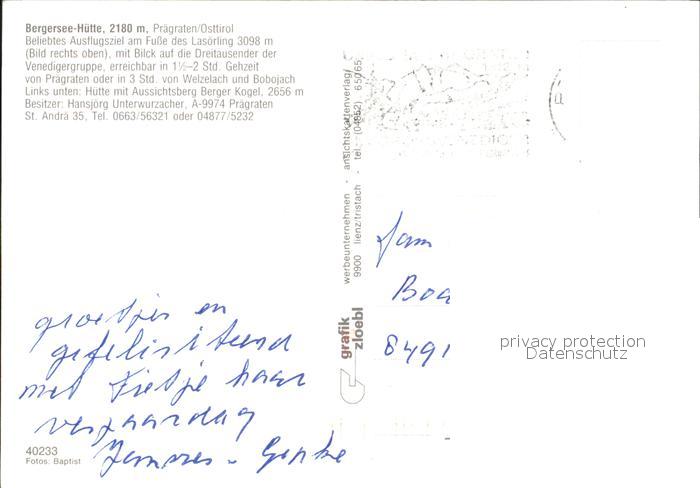 Bergersee-Hütte, 2180 m, Prägraten/Osttirol
Beliebtes Ausflugsziel am Fuße des Lasörling 3098 m
(Bild rechts oben), mit Bilck auf die Dreitausender der
Venedigergruppe, erreichbar in 1½–2 Std. Gehzeit
von Prägraten oder in 3 Std. von Welzelach und Bobojach
Links unten: Hütte mit Aussichtsberg Berger Kogel, 2656 m
Besitzer: Hansjörg Unterwurzacher, A-9974 Prägraten
St. Andrä 35, Tel. 0663/56321 oder 04877/5232
groetjes en
gefeliciteerd
met Fietje haar
verjaardag
40233
Fotos: Baptist
werbeunternehmen · ansichtskartenverlag
9900 lienz/tristach · tel. (04852) 65065
grafik
zloebl
Fam
Boa
8491
privacy protection
Datenschutz